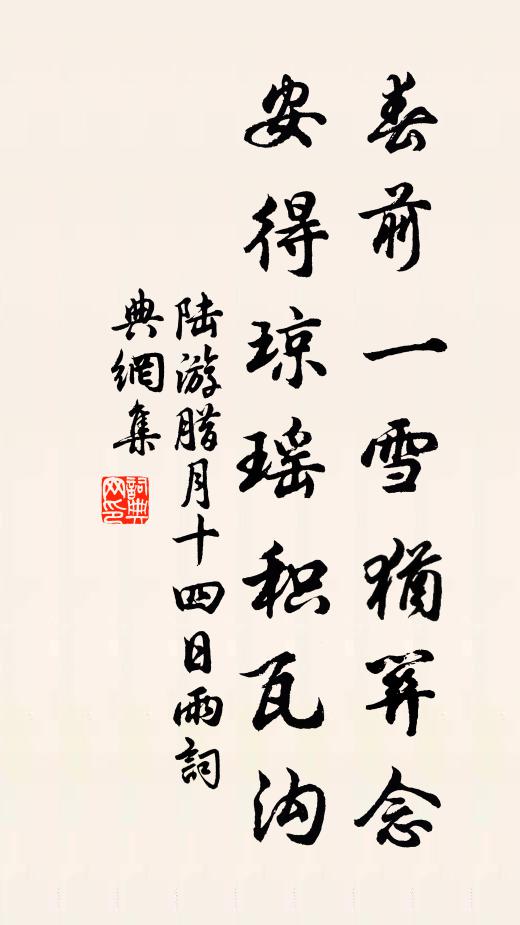 春前一雪猶关念
安得琼瑶积瓦沟
陆游腊月十四日雨詞
典網集
詞典
网印